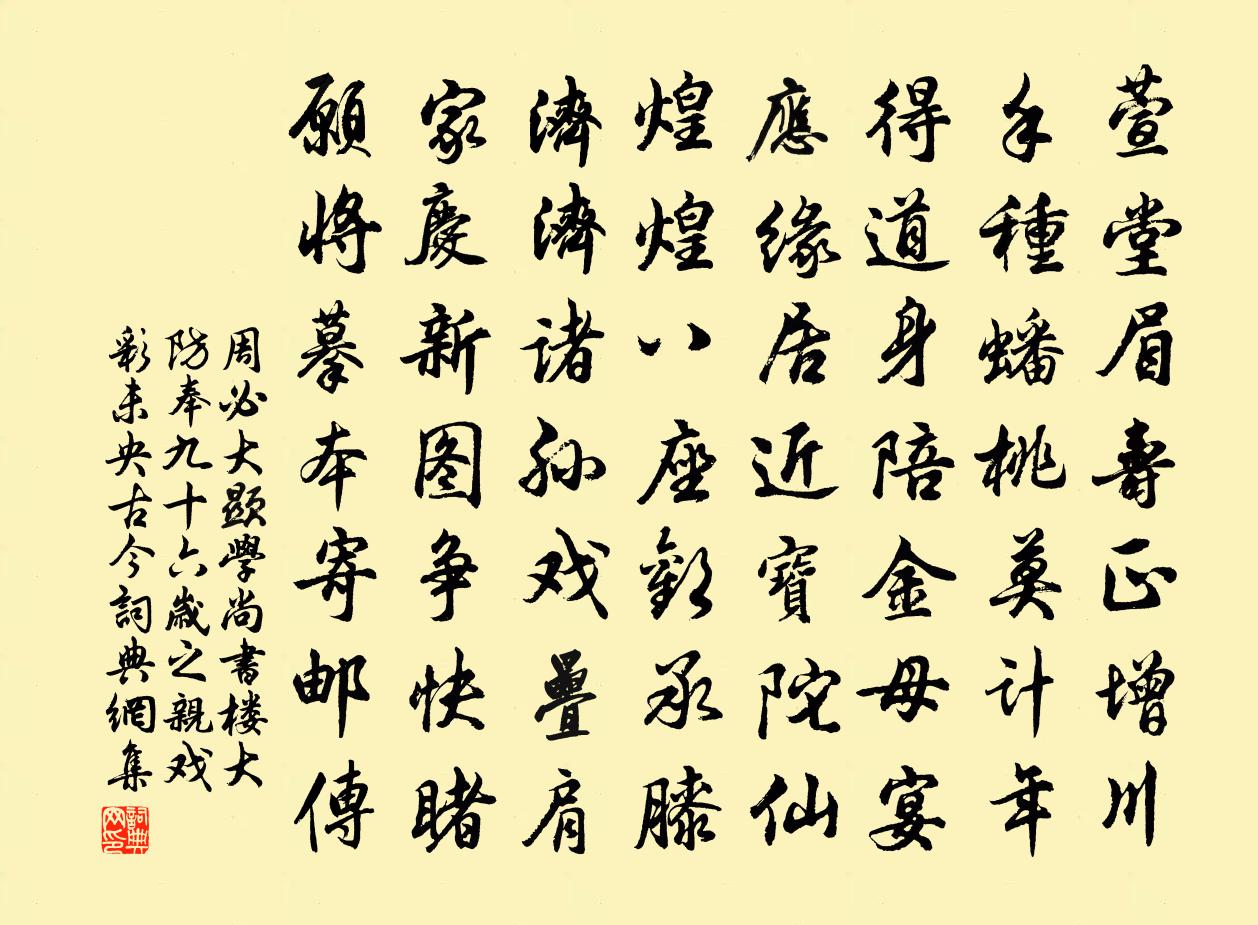 萱堂眉壽正增川
手種蟠桃莫计年
得道身陪金母宴
應缘居近寶陀仙
煌煌八座歡承膝
濟濟诸孙戏疊肩
家慶新图争快睹
願將摹本寄邮傳
周必大题學尚書楼大
防奉九十六歲之親戏
彩未央古今詞典網集
詞典網印